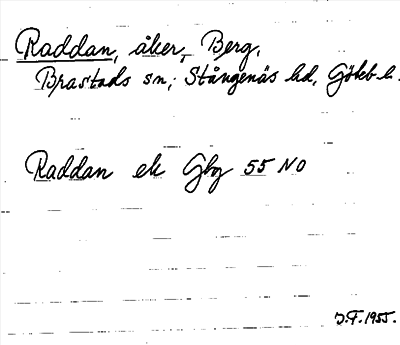 Raddan, åker, Berg,
Brastads sn, Stångenäs hd, Göteb l.
Raddan ek Gbg 55 NO
J.F. 1955.